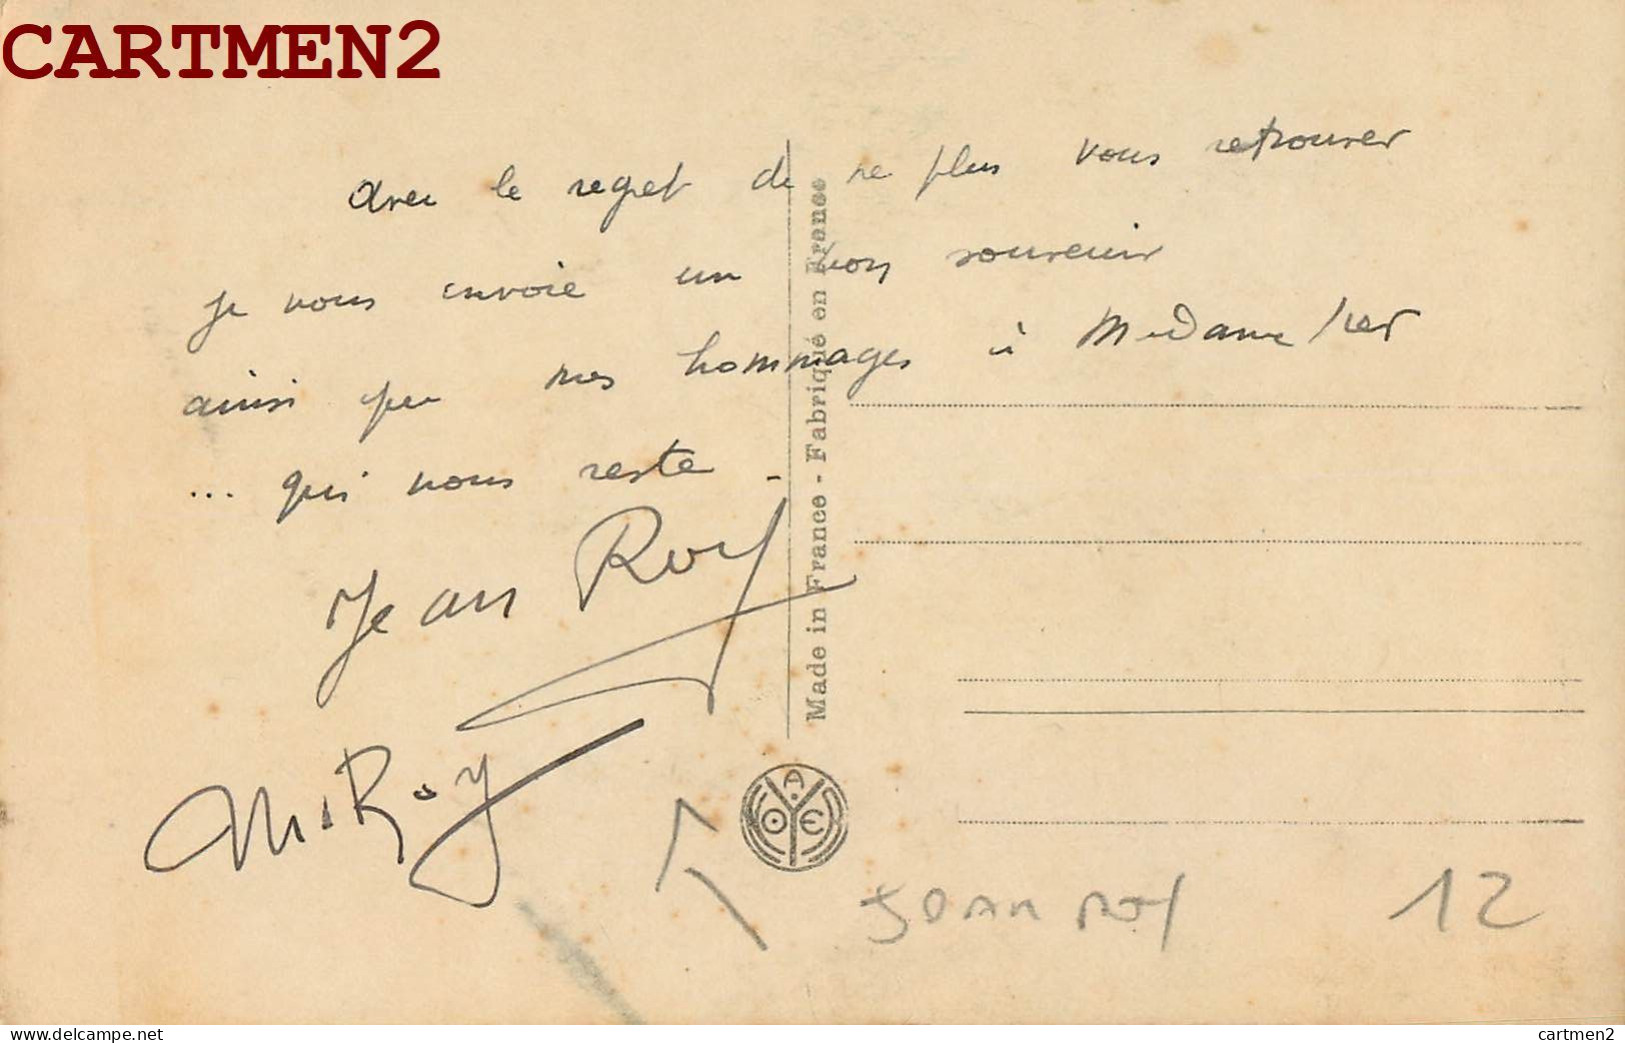 CARTMEN2
Avec le regret de ne plus vous retrouver
je vous envoie un bon souvenir
ainsi que mes hommages à Madame
... qui nous reste -
Jean Roy
M. Roy
Made in France - Fabriqué en France
YA OE
JEAN ROY 12
https://www.delcampe.net
cartmen2